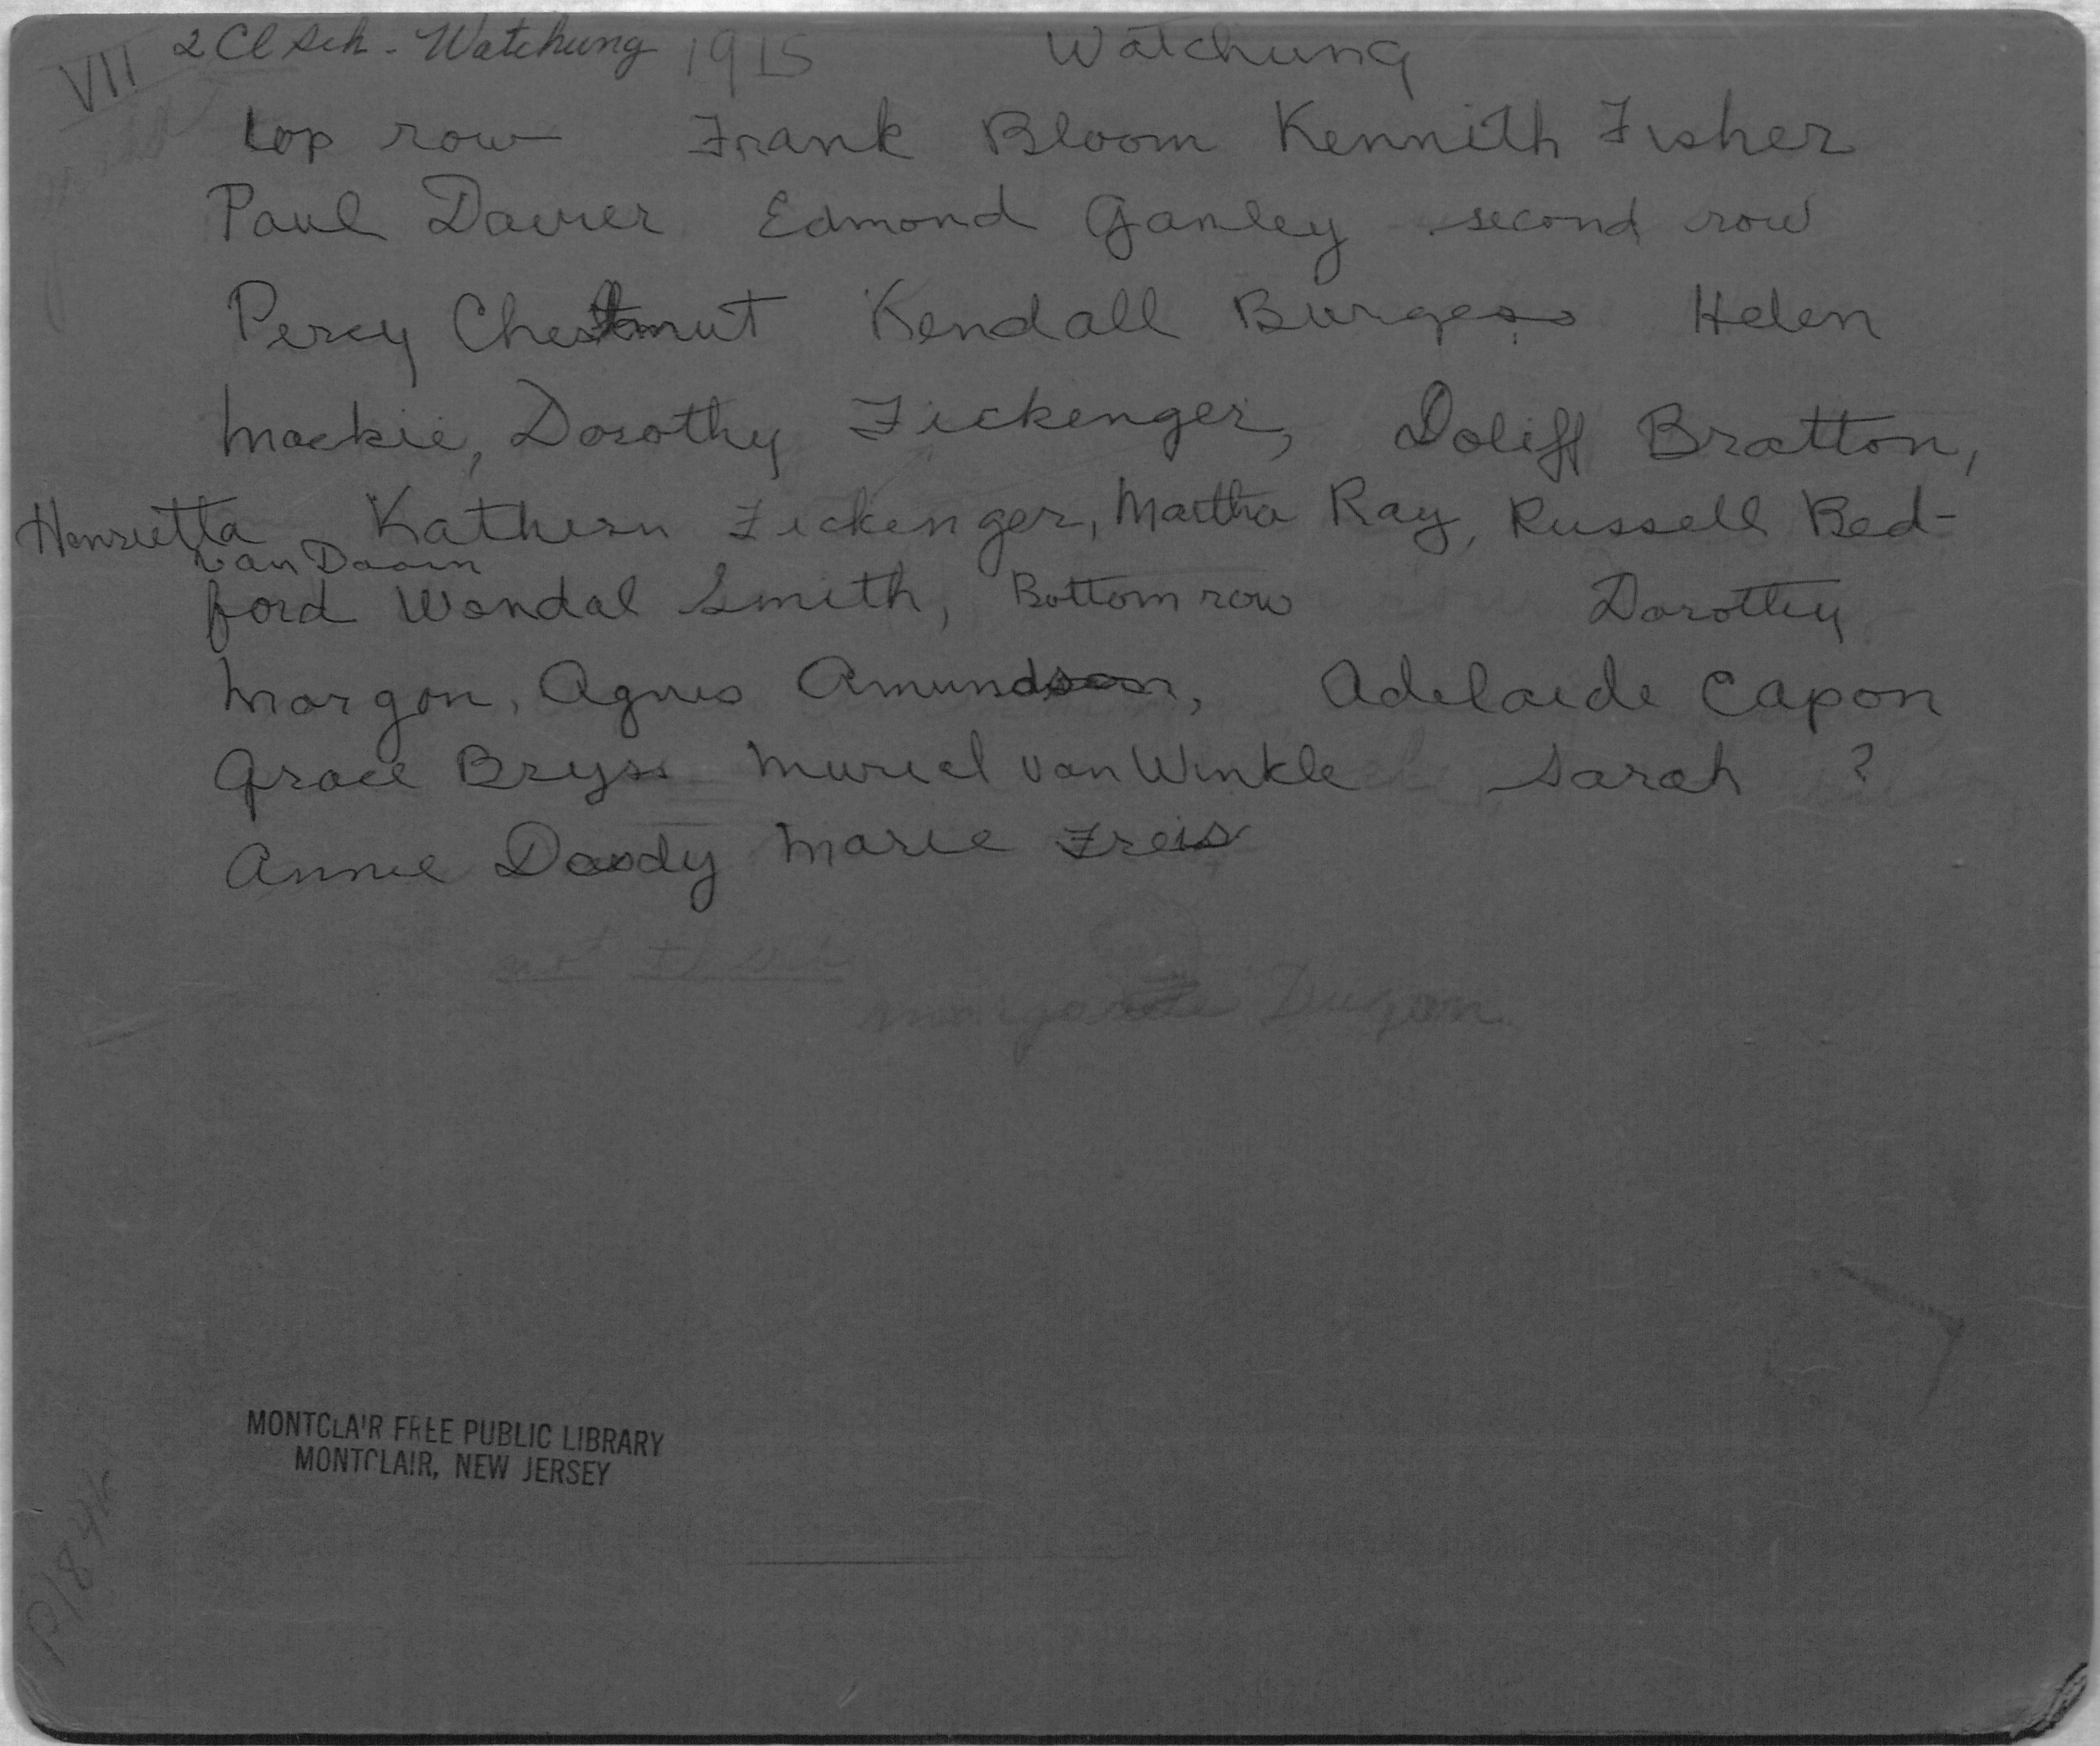 VII 2 Cl Sch. - Watchung 1915 Watchung
top row Frank Bloom Kennith Fisher
Paul Davier Edmond Ganley second row
Percy Chestnut Kendall Burgess Helen
Mackie, Dorothy Fickenger, Doliff Bratton,
Henrietta Kathern Fickenger, Martha Ray, Russell Bed-
van Doorn
ford Wendal Smith, Bottom row Dorothy
Morgon, Agnes Amundson, Adelaide Capon
Grace Bryss Muriel van Winkle Sarah ?
Annie Dowdy Marie Freis
Dugan
MONTCLAIR FREE PUBLIC LIBRARY
MONTCLAIR, NEW JERSEY